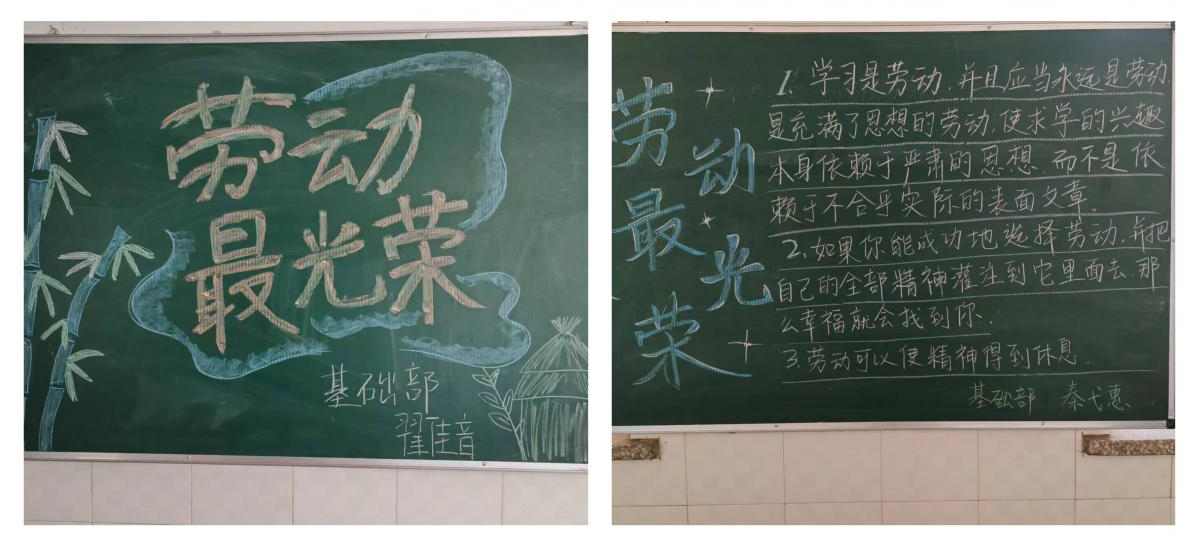 劳动
最光荣
基础部
翟佳音
劳动最光荣
1、学习是劳动,并且应当永远是劳动,
是充满了思想的劳动,使求学的兴趣
本身依赖于严肃的思想,而不是依
赖于不合乎实际的表面文章。
2、如果你能成功地选择劳动,并把
自己的全部精神灌注到它里面去,那
么幸福就会找到你。
3、劳动可以使精神得到休息。
基础部 秦弋惠